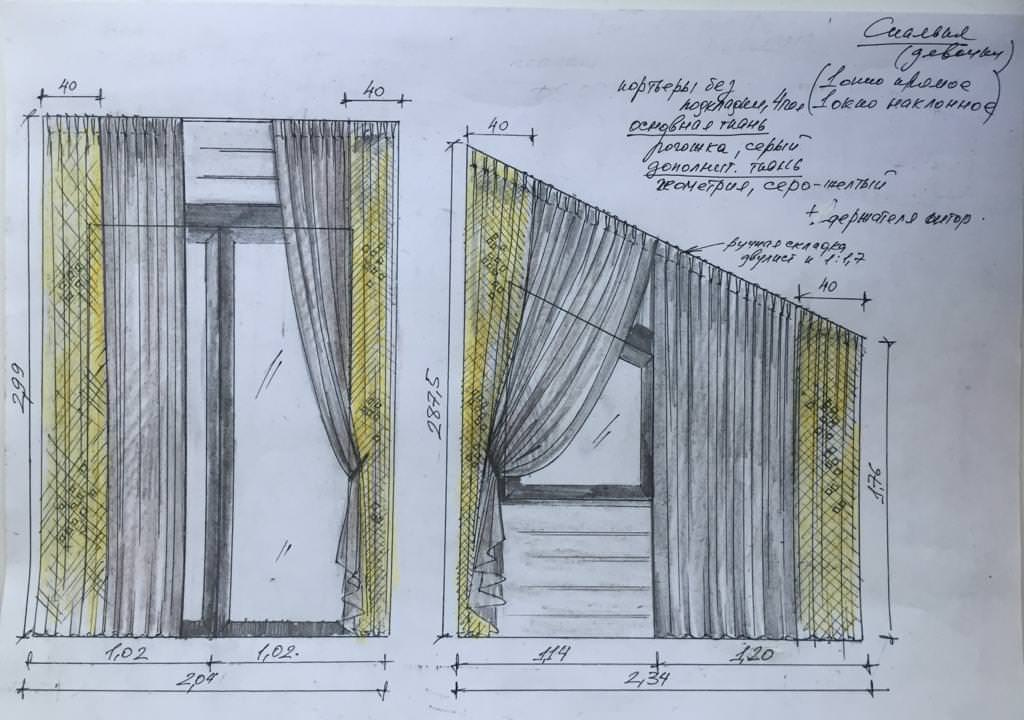 Спальня
(девочки)
портьеры без
подкладки, 4пол
(1 окно прямое
1 окно наклонное)
основная ткань
рогожка, серый
дополнит. ткань
геометрия, серо-желтый
+ держателя штор.
ручная складка
1:1,7
40
40
40
40
2,99
287,5
1,76
1,02
1,02.
2,04
1,14
1,20
2,34